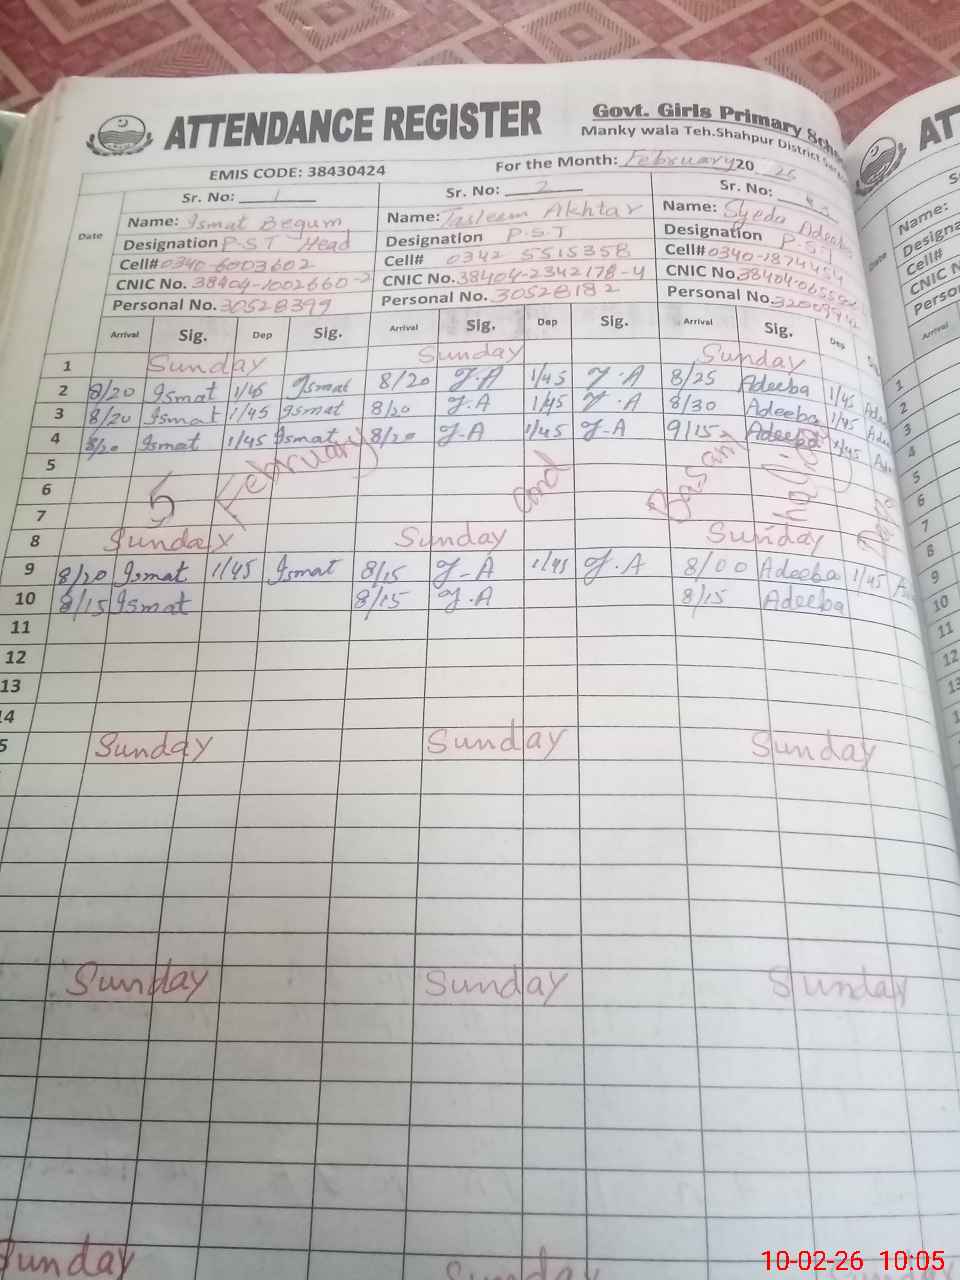 ATTENDANCE REGISTER
Govt. Girls Primary
Manky wala Teh.Shahpur District
EMIS CODE: 38430424
For the Month: February 20 26
Date
Sr. No: 1
Name: Ismat Begum
Designation P-S-T Head
Cell# 0340-6003602
CNIC No. 38404-1002660-2
Personal No. 30528399
Sr. No: 2
Name: Tasleem Akhtar
Designation P-S-T
Cell# 0342 5515358
CNIC No. 38404-2342178-4
Personal No. 30528182
Sr. No:
Name: Syeda Adeeba
Designation P-S-T
Cell# 0340-1874454
CNIC No. 38404-
Personal No.
Arrival Sig. Dep Sig. Arrival Sig. Dep Sig. Arrival Sig. Dep
1 Sunday Sunday Sunday
2 8/20 Ismat 1/45 Ismat 8/20 T.A 1/45 T.A 8/25 Adeeba 1/45
3 8/20 Ismat 1/45 Ismat 8/20 T.A 1/45 T.A 8/30 Adeeba 1/45
4 8/20 Ismat 1/45 Ismat 8/20 T-A 1/45 T-A 9/15 Adeeba 1/45
5
6
7
5 February and Basant holiday
8 Sunday Sunday Sunday
9 8/20 Ismat 1/45 Ismat 8/15 T-A 1/45 T.A 8/00 Adeeba 1/45
10 8/15 Ismat 8/15 T.A 8/15 Adeeba
11
12
13
14
5 Sunday Sunday Sunday
Sunday Sunday Sunday
Sunday Sunday Sunday
AT
Name:
Designa
Cell#
CNIC N
Perso
Date
Arrival
1
2
3
4
5
6
7
8
9
10
11
12
10-02-26 10:05